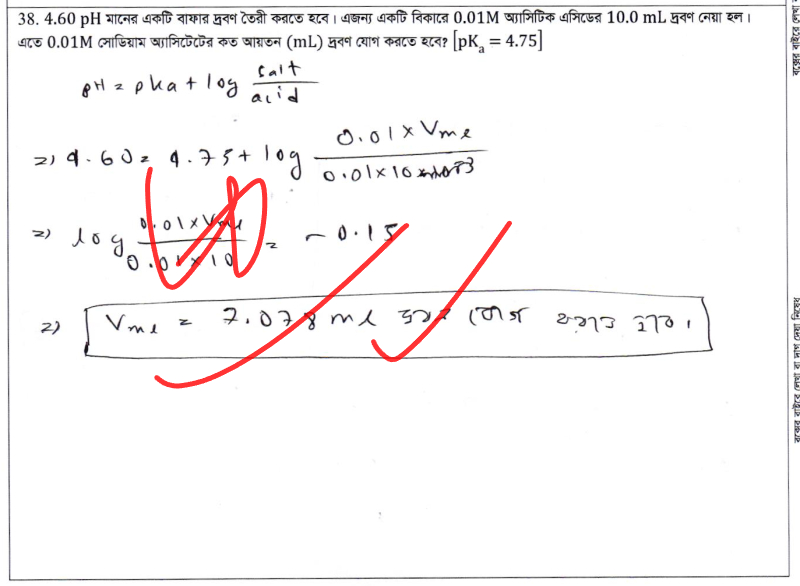 38. 4.60 pH মানের একটি বাফার দ্রবণ তৈরী করতে হবে। এজন্য একটি বিকারে 0.01M অ্যাসিটিক এসিডের 10.0 mL দ্রবণ নেয়া হল।
এতে 0.01M সোডিয়াম অ্যাসিটেটের কত আয়তন (mL) দ্রবণ যোগ করতে হবে? [pKₐ = 4.75]
pH = pka + log salt/acid
=) 4.60 = 4.75 + log 0.01 × V_ml / 0.01 × 10
=) log 0.01 × V_ml / 0.01 × 10 = - 0.15
=) V_ml = 7.078 ml দ্রবণ যোগ করতে হবে।